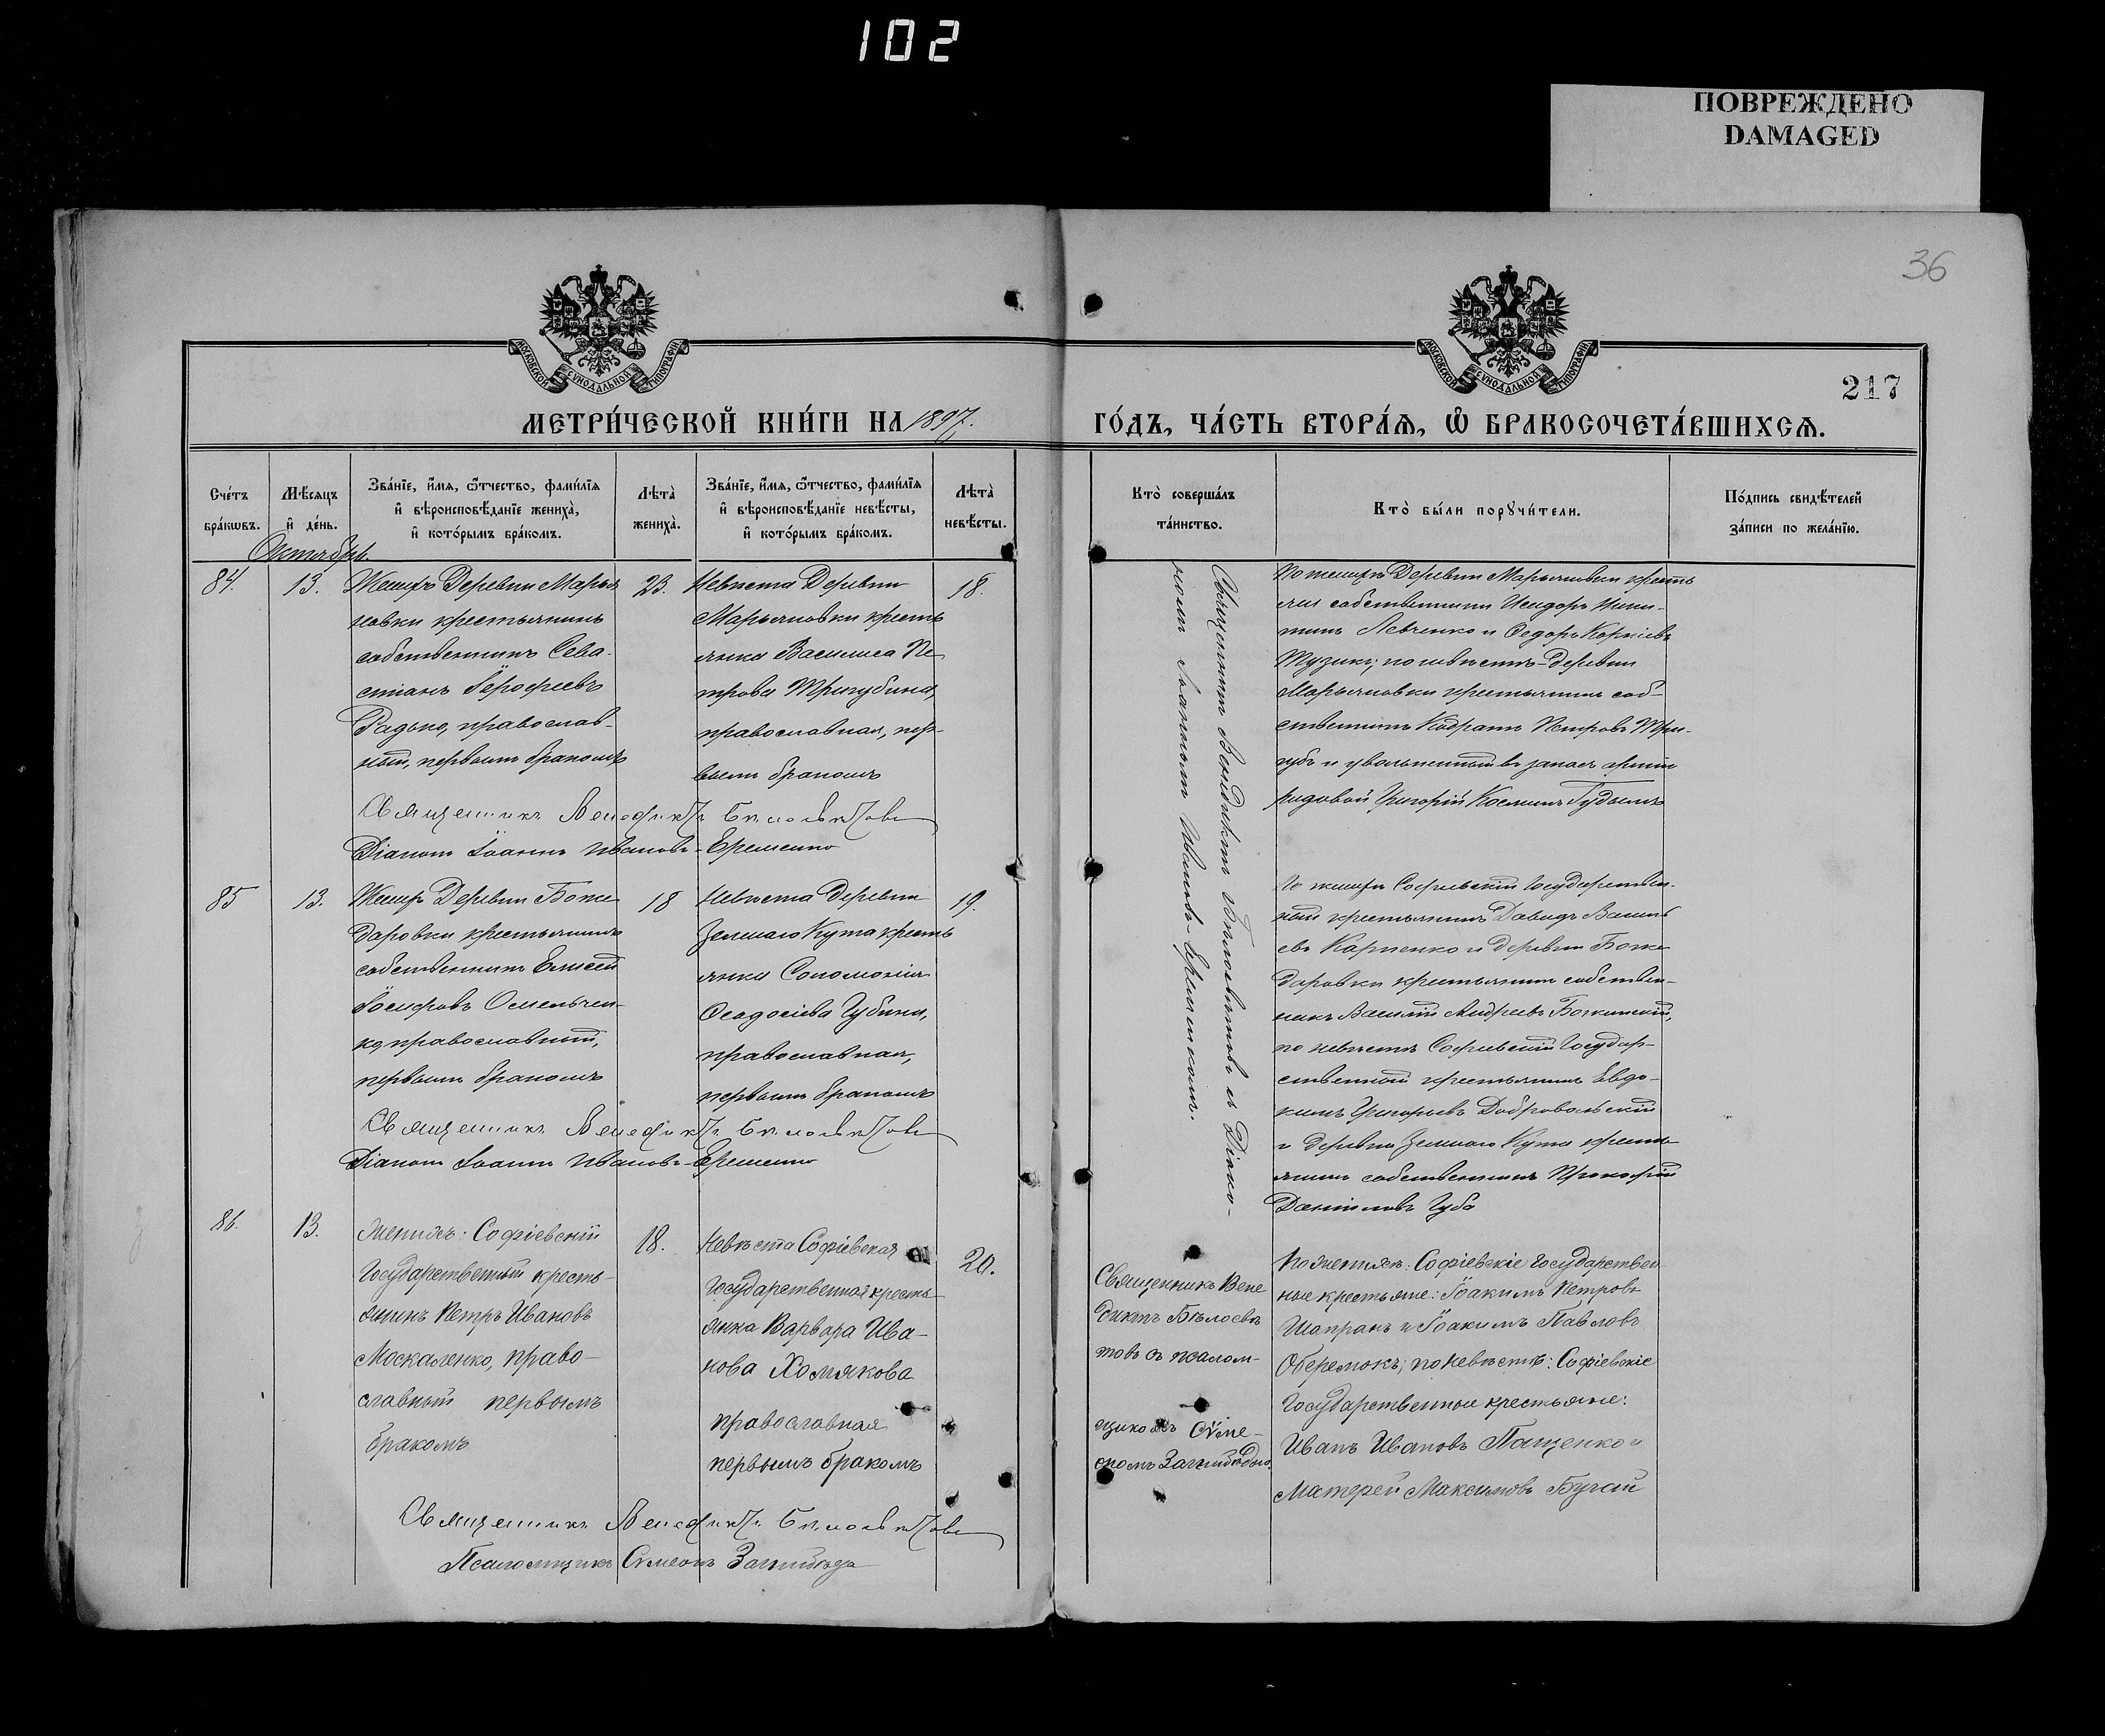 102
ПОВРЕЖДЕНО
DAMAGED
36
МОСКОВСКОЙ СУНОДАЛЬНОЙ ТИПОГРАФІИ
МОСКОВСКОЙ СУНОДАЛЬНОЙ ТИПОГРАФІИ
217
МЕТРИ́ЧЕСКОЙ КНИ́ГИ НА 1897.
ГО́ДЪ, ЧА́СТЬ ВТОРА́Ѧ, Ѽ БРАКОСОЧЕТА́ВШИХСѦ.
Сче́тъ
бра́кѡвъ.
Мѣ́сяцъ
и҆ де́нь.
Зва́нїе, и҆́мя, ѻ҆́тчество, фами́лїя
и҆ вѣроисповѣ́данїе жениха̀,
и҆ кото́рымъ бра́комъ.
Лѣта̀
жениха̀.
Зва́нїе, и҆́мя, ѻ҆́тчество, фами́лїя
и҆ вѣроисповѣ́данїе невѣ́сты,
и҆ кото́рымъ бра́комъ.
Лѣта̀
невѣ́сты.
Кто̀ соверша́лъ
та́инство.
Кто̀ бы́ли порꙋчи́тели.
По́дпись свидѣ́телей
за́писи по жела́нїю.
Октябрь.
84.
13.
Женихъ Деревни Марья
новки крестьянинъ
собственникъ Сева-
стіанъ Іерофеевъ
Радько, православ-
ный, первымъ бракомъ
23.
Невѣста Деревни
Марьяновки кресть
янка Василиса Пе
трова Тригубина,
православная, пер-
вымъ бракомъ
18.
Священникомъ Венедиктомъ Бѣлосвѣтовъ съ Діако-
номъ Іоанномъ Ивановъ Еременкомъ.
По женихѣ Деревни Марьяновки кресть
яни собственники Исидоръ Ники-
тинъ Левченко и Ѳедоръ Корніевъ
Тузикъ; по невѣстѣ-Деревни
Марьяновки крестьянинъ соб-
ственникъ Кодратъ Петровъ Три-
губъ и увольненный въ запасъ арміи
рядовой Григорій Косминъ Гудымъ
Священникъ Венедиктъ Бѣлосвѣтовъ
Діаконъ Іоаннъ Ивановъ-Еременко
85
13.
Женихъ Деревни Боже
даровки крестьянинъ
собственникъ Елисей
Іосифовъ Омельчен-
ко, православный,
первымъ бракомъ
18
Невѣста Деревни
Зеленаго Кута кресть
янка Соломонія
Ѳеодосіева Губина,
православная,
первымъ бракомъ
19.
По женихѣ Софіевскій Государствен-
ный крестьянинъ Давидъ Василь
евъ Карпенко и Деревни Боже
даровки крестьянинъ собствен-
никъ Василій Андреевъ Божинскій,
по невѣстѣ Софіевскій Государ-
ственный крестьянинъ Евдо-
кимъ Григорьевъ Добровольскій
и Деревни Зеленаго Кута кресть
янинъ собственникъ Прокофій
Даніиловъ Губа
Священникъ Венедиктъ Бѣлосвѣтовъ
Діаконъ Іоаннъ Ивановъ-Еременко
86.
13.
Женихъ: Софіевскій
Государственный кресть-
янинъ Петръ Ивановъ
Москаленко, право-
славный первымъ
бракомъ
18.
Невѣста Софіевская
Государственная кресть-
янка Варвара Ива-
нова Хомякова
православная
первымъ бракомъ
20.
Священникъ Вене
диктъ Бѣлосвѣ
товъ съ псалом-
щикомъ Сѵме-
ономъ
По женихѣ: Софіевскіе Государствен-
ные крестьяне: Іоакимъ Петровъ
Шапранъ и Іоакимъ Павловъ
Оберемокъ; по невѣстѣ: Софіевскіе
Государственные крестьяне:
Иванъ Ивановъ Пащенко и
Матѳей Максимовъ Бугай
Священникъ Венедиктъ Бѣлосвѣтовъ
Псаломщикъ Сѵмеонъ